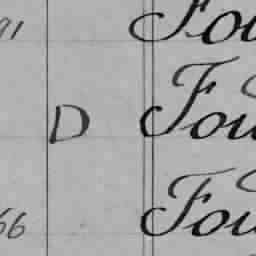 91 Fou
D Fou
66 Fou